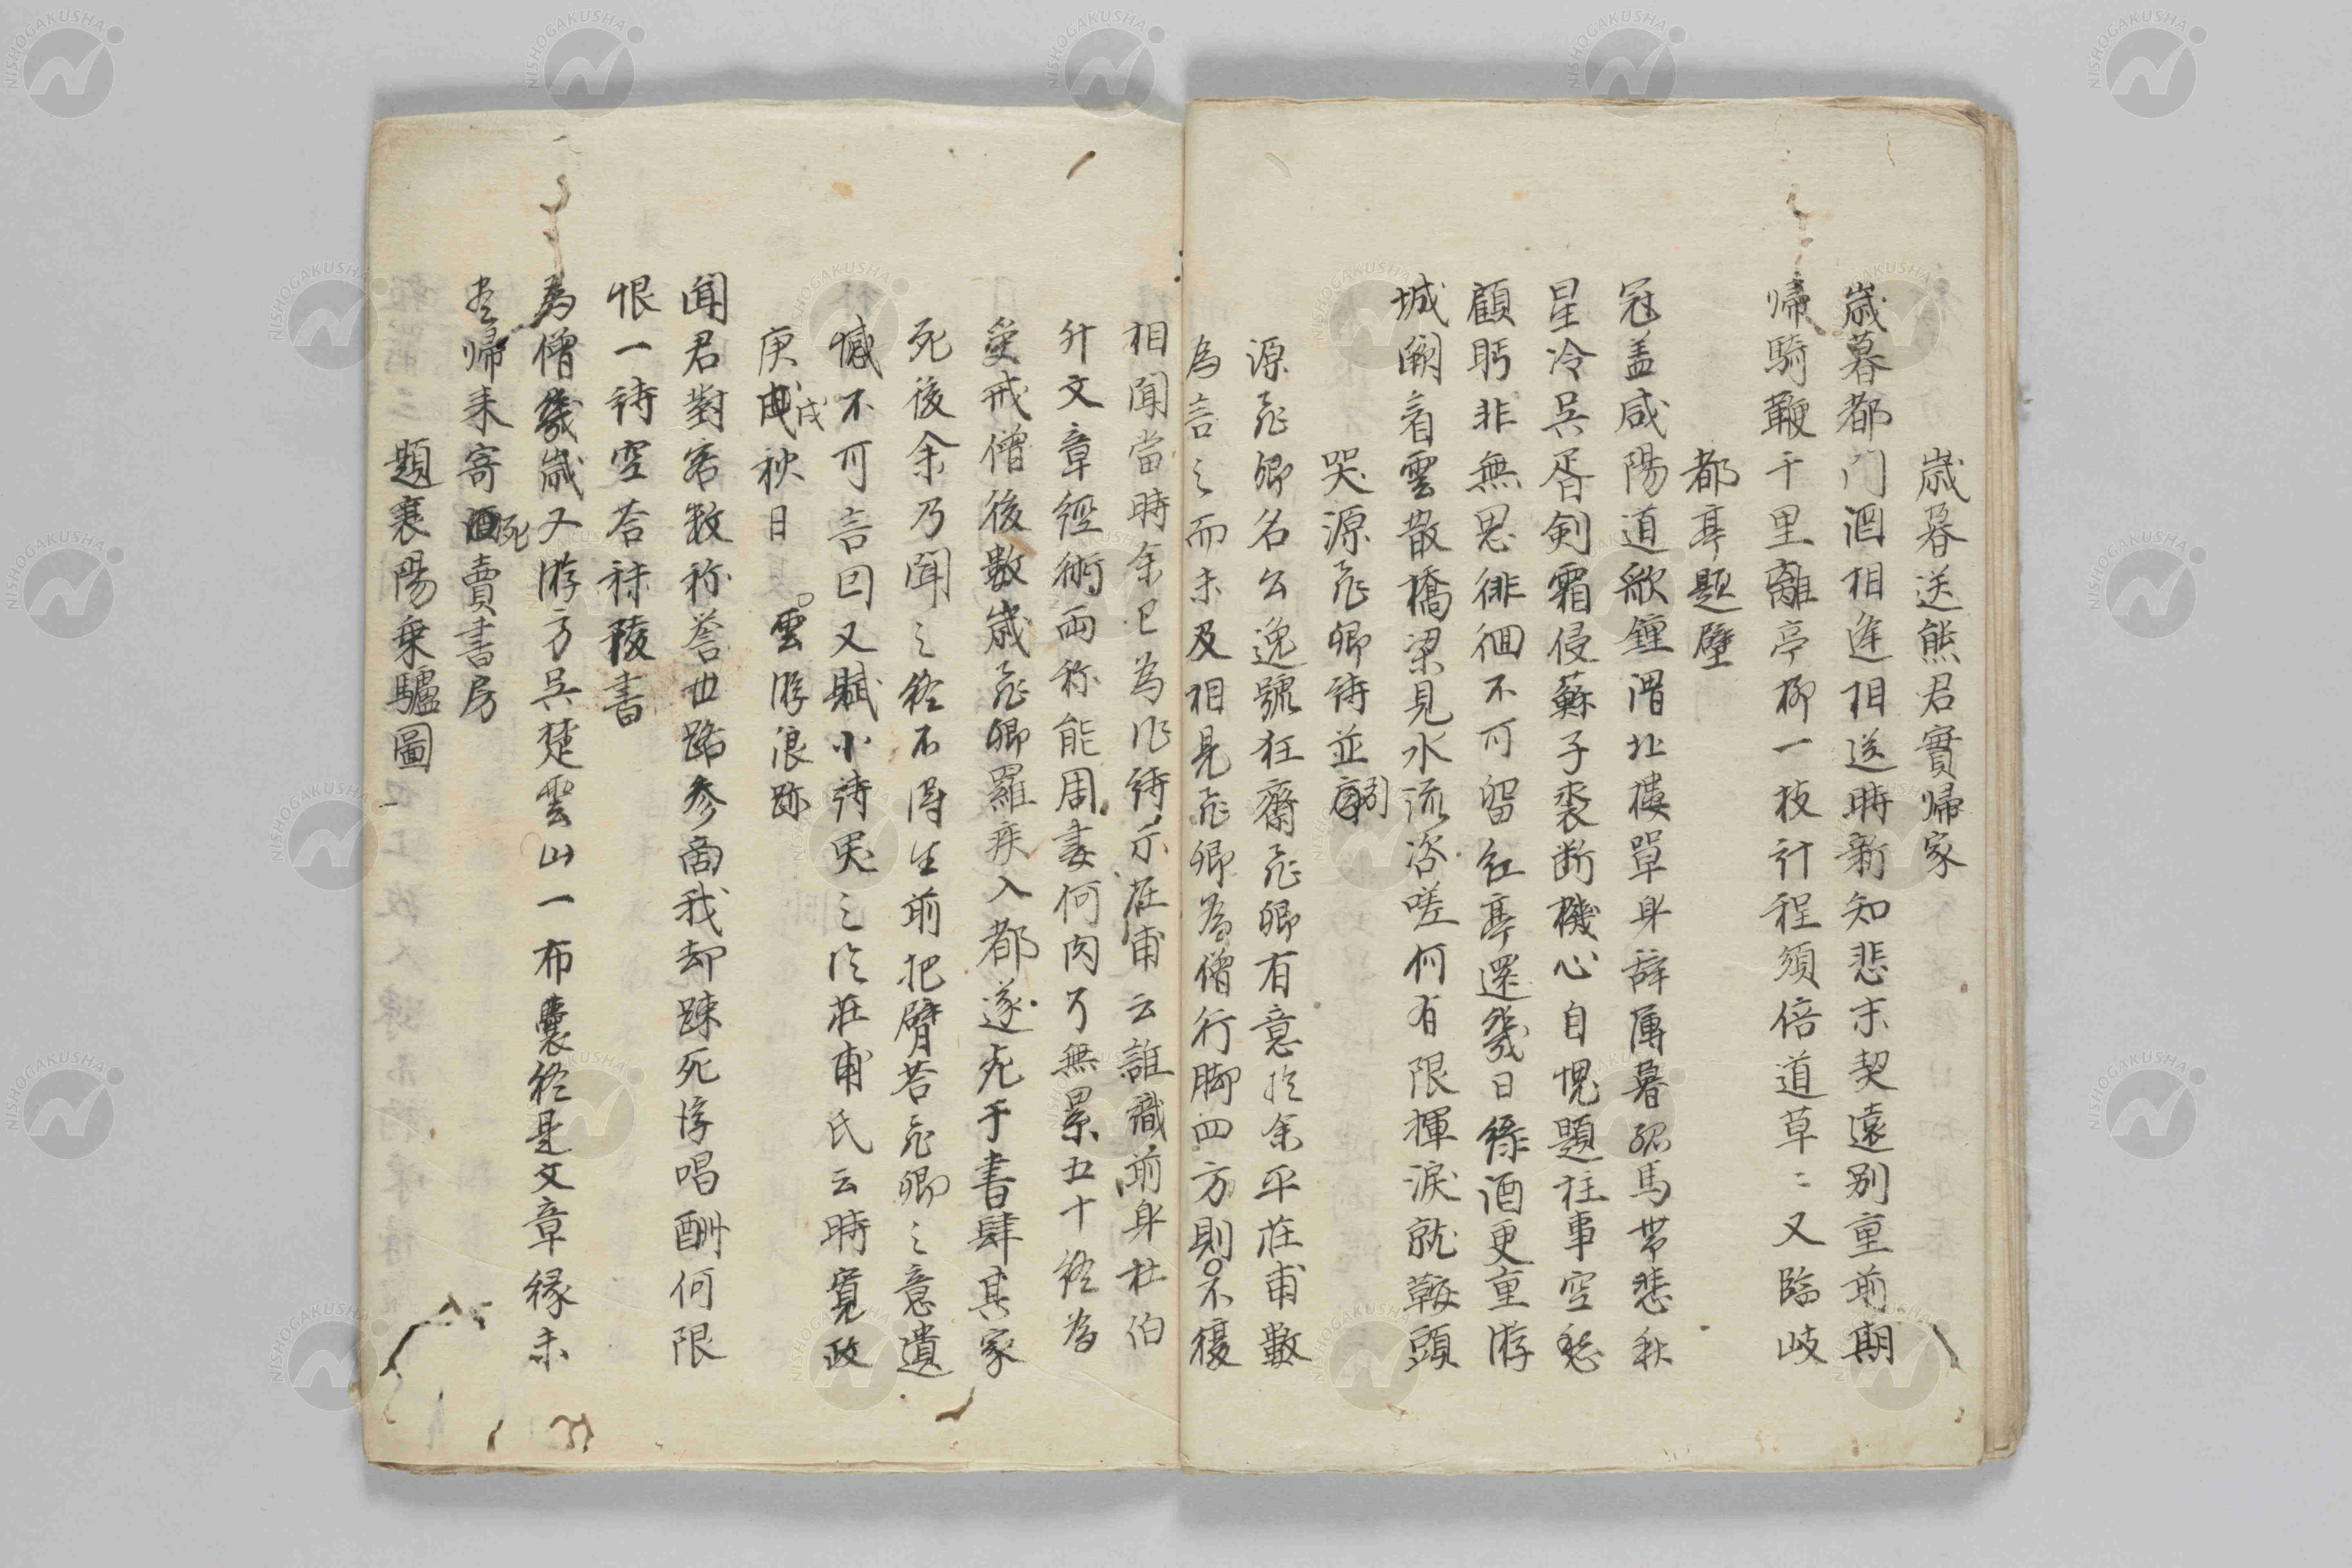 歳暮送熊君實帰家
歳暮都門酒相逢相送時新知悲未契遠别重前期
帰騎鞭千里離亭柳一枝計程須倍道草〻又臨岐
都亭題壁
冠盖咸陽道歌鐘渭北樓單身辞薄暮羸馬帯悲秋
星冷呉胥剣霜侵蘇子裘断機心自愧題柱事空愁
顧眄非無思徘徊不可留紅亭還幾日緑酒更重游
城闕看雲散橋梁見水流咨嗟何有限揮涙就鞍頭
哭源龍卿詩並引
源龍卿名公逸號狂齋龍卿有意於余平荘甫數
為言之而未及相見龍卿為僧行脚四方則不復
相聞當時余已為作詩示荘甫云誰識前身杜伯
升文章經術両称能周妻何肉了無累五十終為
受戒僧後數歳龍卿羅疾入都遂死于書肆其家
死後余乃聞之終不得生前把臂若龍卿之意遺
憾不可言因又賦小詩哭之以荘甫氏云時寛政
庚戌秋日 雲游浪跡
戌
聞君對客数称誉世路参商我却疎死後唱酬何限
恨一詩空答秣陵書
為僧幾歳又游方呉楚雲山一布嚢終是文章縁未
尽帰来寄死賣書房
題襄陽乗驢圖
NISHOGAKUSHA